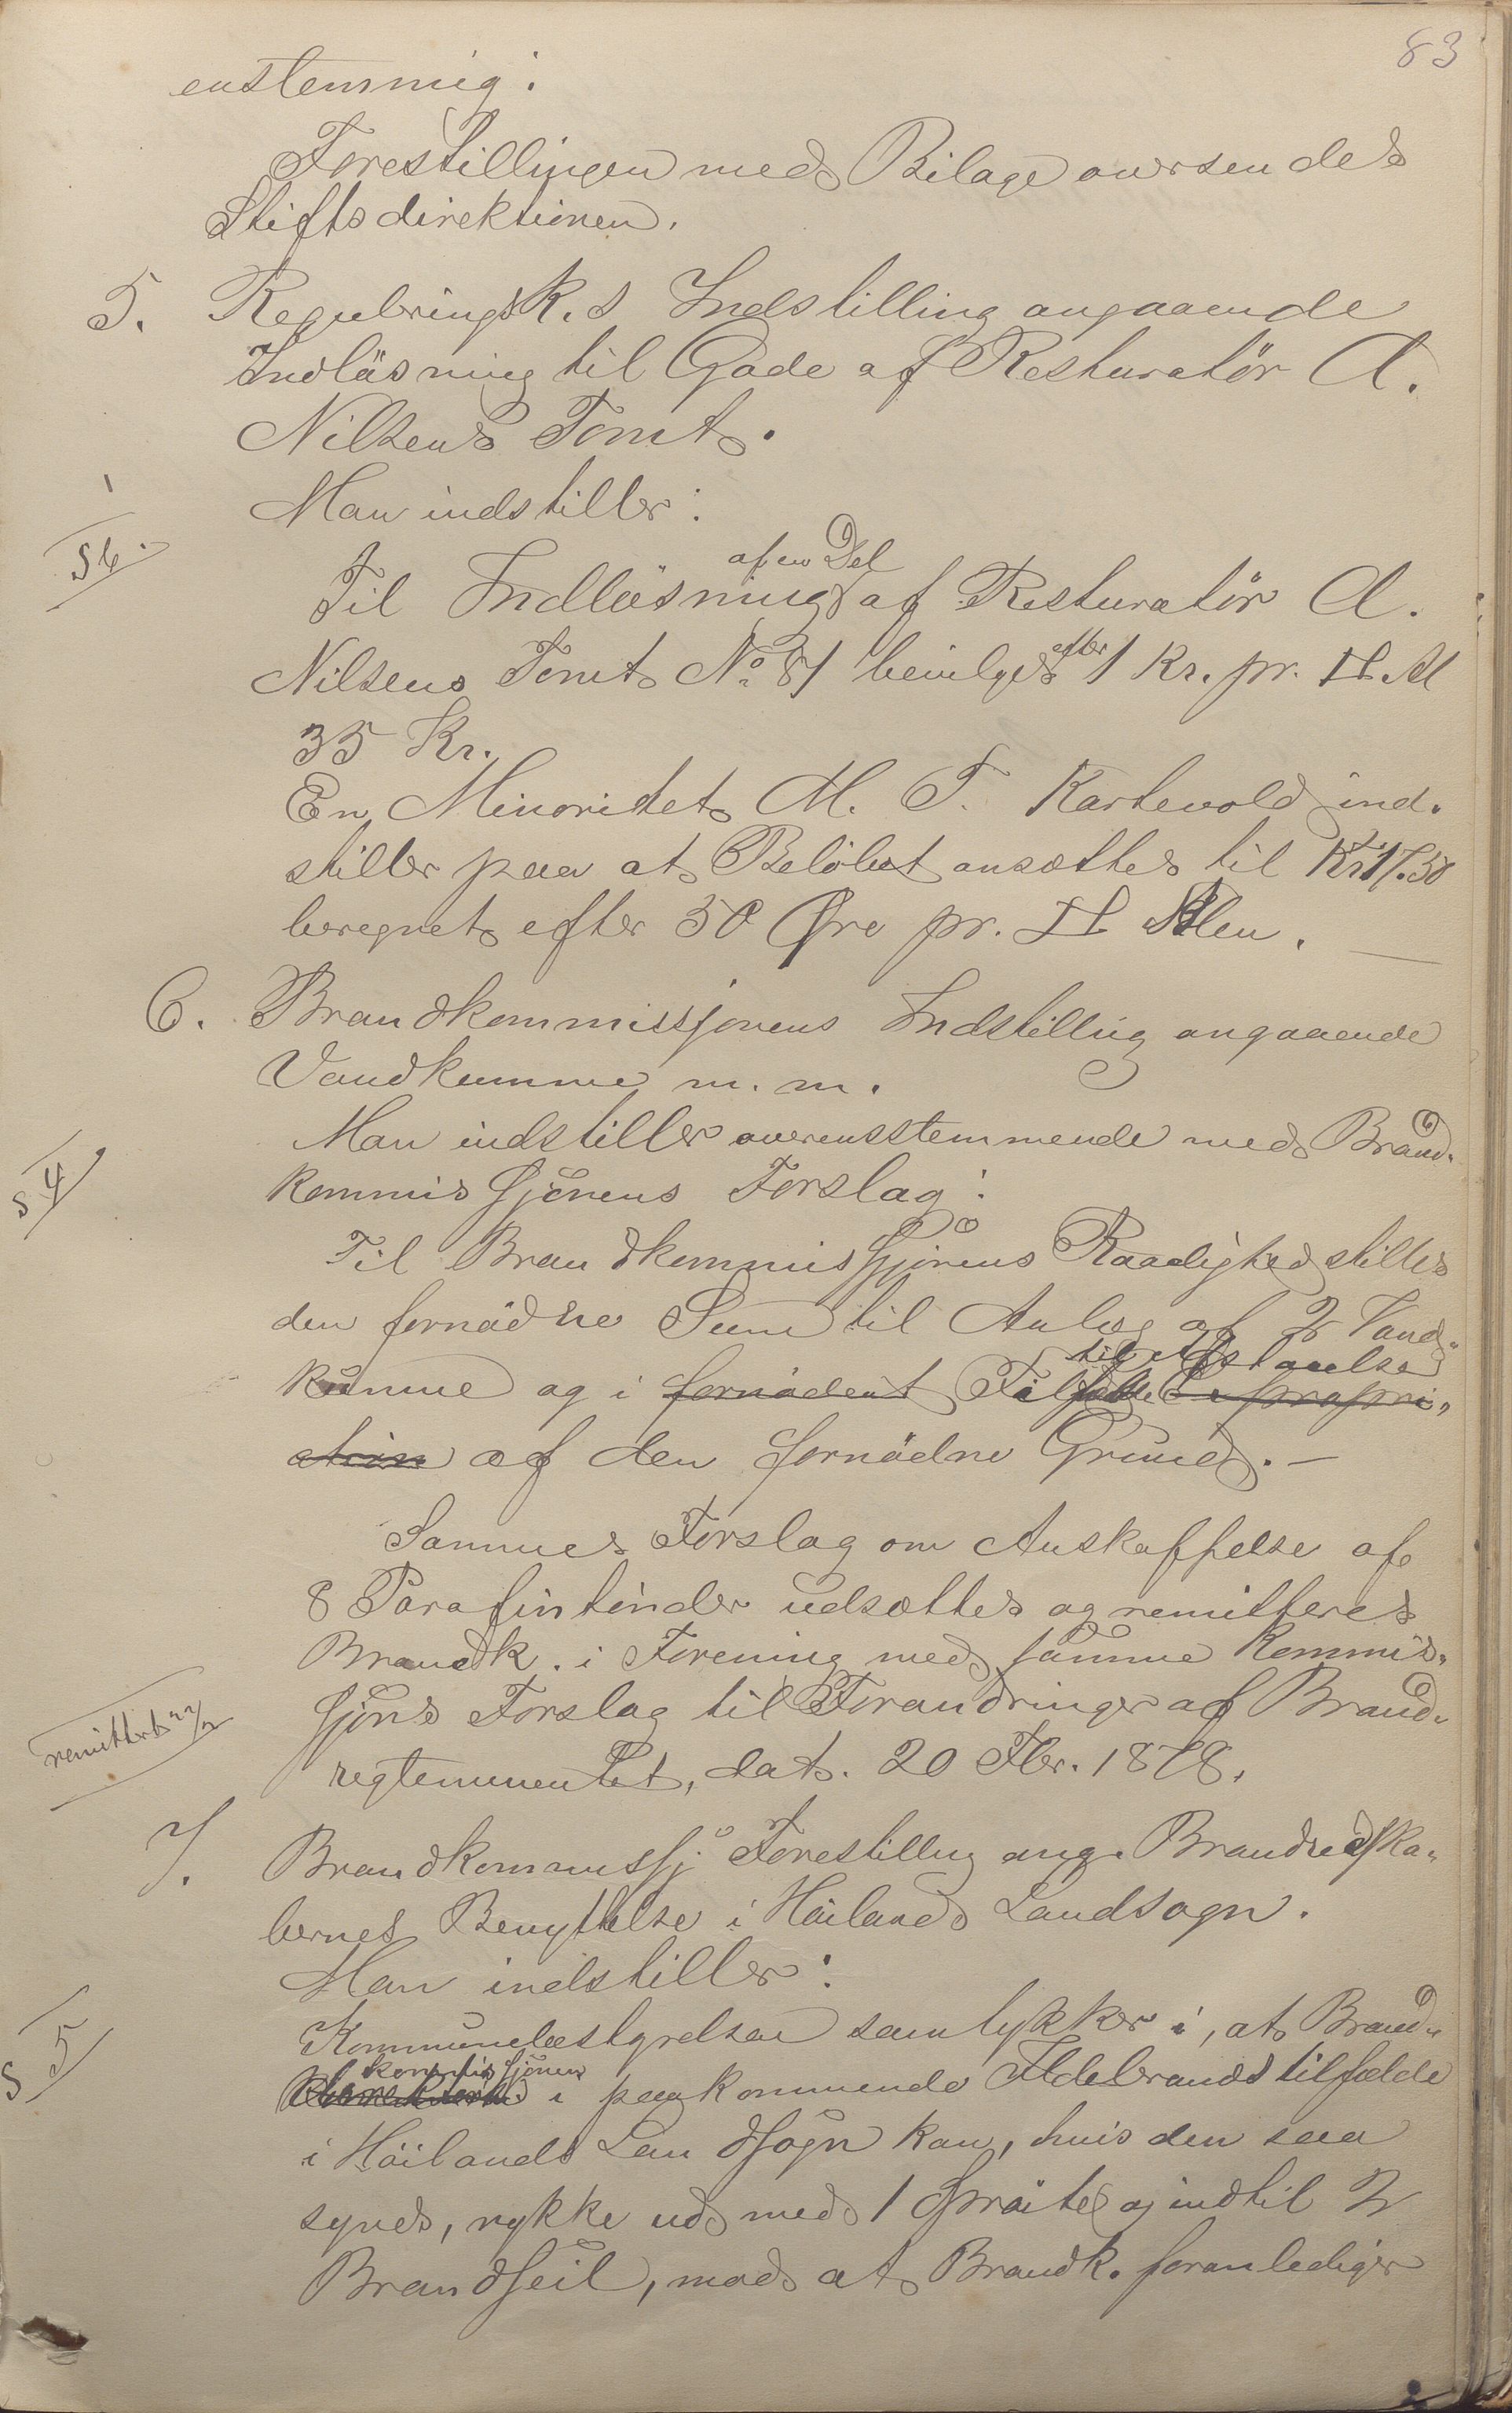 83
enstemmig:
Forestillingen med Bilage oversendes
Stiftsdirektionen.
5. Regulerings K.s Indstilling angaaende
Indløsning til Gade af Resturatör A.
Nilsens Tomt.
Man indstiller:
S 6.
af en Del
Til Indløsning af Resturatör A.
Nilsens Tomt No 81 bevilges efter 1 Kr. pr. □ Al
35 Kr.
En Minoritet M. T. Kartevold ind-
stiller paa at Beløbet ansættes til Kr 17.50
beregnet efter 50 Øre pr. □ Alen.
6. Brandkommissjonens Indstilling angaaende
Vandkumme m. m.
Man indstiller overensstemmende med Brand-
S 4
kommissjonens Forslag:
Til Brandkommissjonens Raadighed stilles
den fornödne Sum til Anlæg af 2 Vand-
til Afstaaelse
kumme og i fornödent Tilfælde Expropri-
ation af den fornödne Grund. —
Sammes Forslag om Anskaffelse af
8 Parafintönder udsættes og remitteres
Brandk. i Forening med samme Kommis-
sjons Forslag til Forandringer af Brand-
remitteret 22/2
reglementet, dat. 20 Fbr. 1878.
7. Brandkommissj Forestilling ang. Brandredska-
bernes Benyttelse i Höilands Landsogn.
Man indstiller:
Kommunebestyrelsen samtykker i, at Brand-
S 5
kommissjonen
i paakommende Ildebrandstilfælde
i Höilands Landsogn kan, hvis den saa
synes, rykke ud med 1 Spröite og indtil 2
Brandseil, mod at Brandk. foranlediger